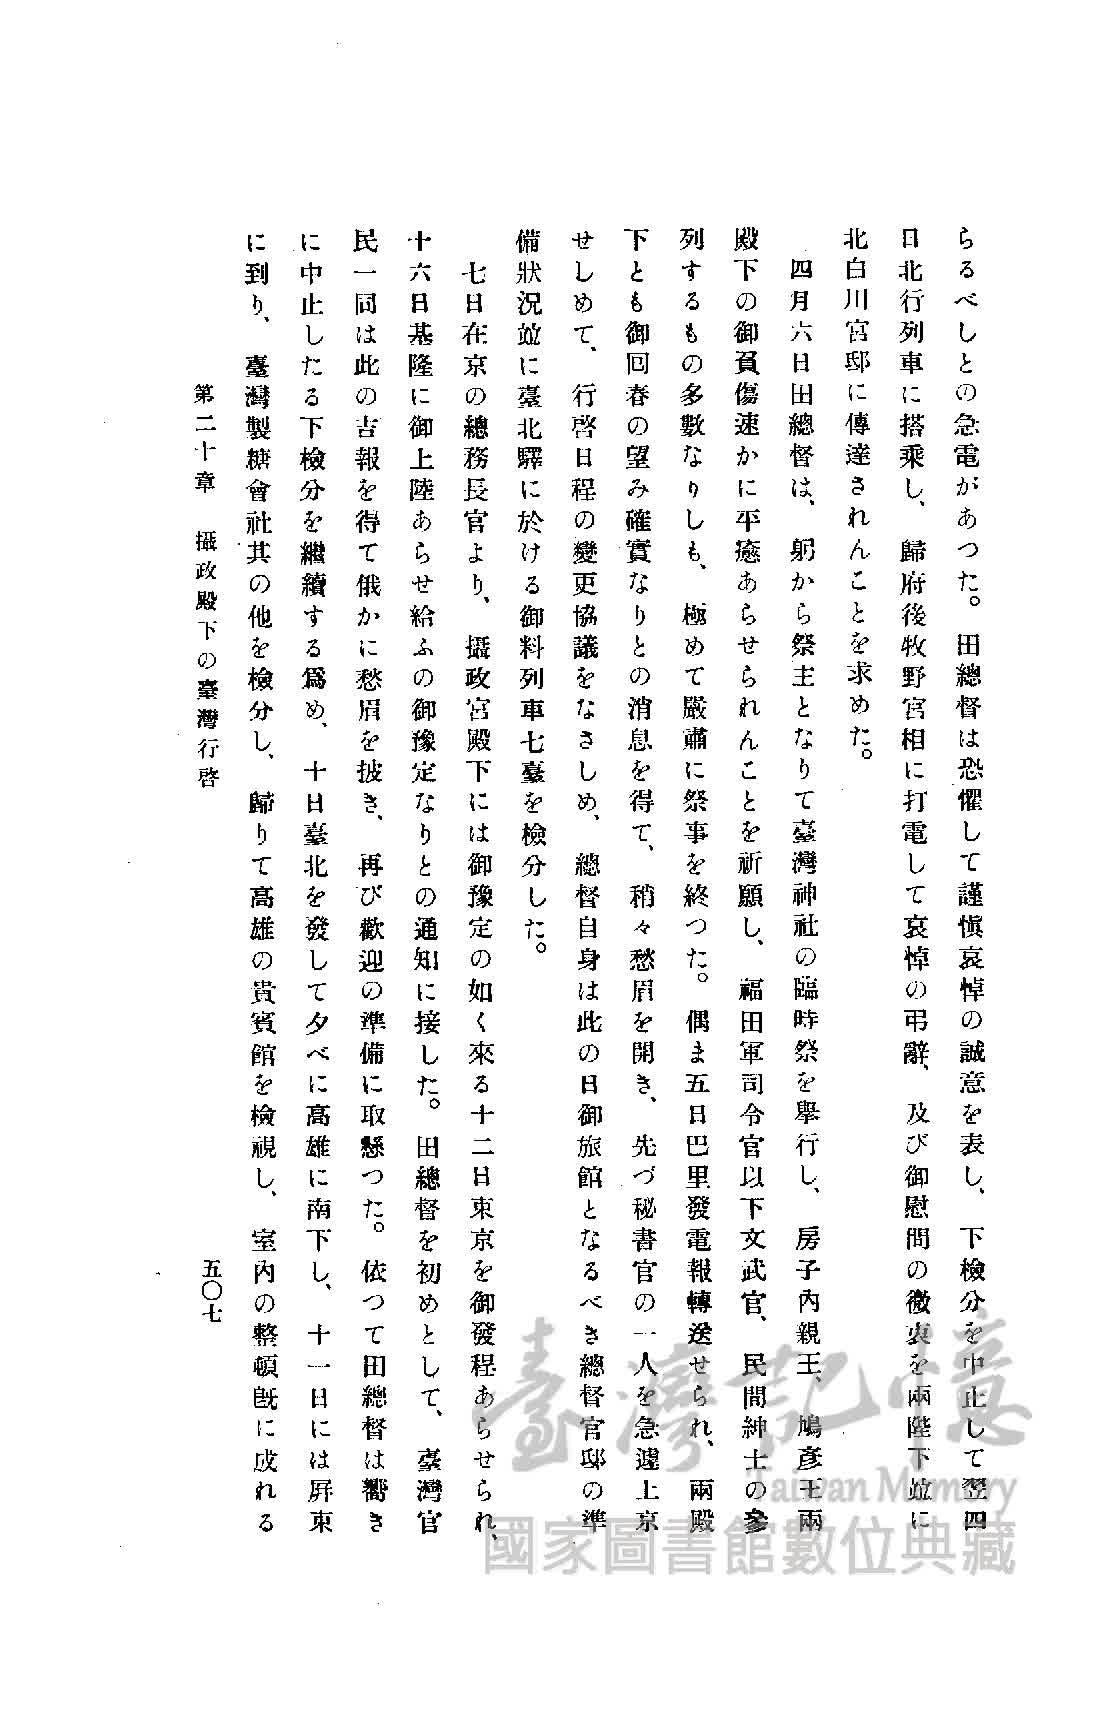 らるべしとの急電があつた。田總督は恐懼して謹愼哀悼の誠意を表し、下檢分を中止して翌四
日北行列車に搭乘し、歸府後牧野宮相に打電して哀悼の弔辭、及び御慰問の微衷を兩陛下竝に
北白川宮邸に傳達されんことを求めた。
四月六日田總督は、躬から祭主となりて臺灣神社の臨時祭を擧行し、房子內親王、鳩彥王兩
殿下の御負傷速かに平癒あらせられんことを祈願し、福田軍司令官以下文武官、民間紳士の參
列するもの多數なりしも、極めて嚴肅に祭事を終つた。偶ま五日巴里發電報轉送せられ、兩殿
下とも御回春の望み確實なりとの消息を得て、稍々愁眉を開き、先づ秘書官の一人を急遽上京
せしめて、行啓日程の變更協議をなさしめ、總督自身は此の日御旅館となるべき總督官邸の準
備狀況竝に臺北驛に於ける御料列車七臺を檢分した。
七日在京の總務長官より、攝政宮殿下には御豫定の如く來る十二日東京を御發程あらせられ、
十六日基隆に御上陸あらせ給ふの御豫定なりとの通知に接した。田總督を初めとして、臺灣官
民一同は此の吉報を得て俄かに愁眉を披き、再び歡迎の準備に取懸つた。依つて田總督は嚮き
に中止したる下檢分を繼續する爲め、十日臺北を發して夕べに高雄に南下し、十一日には屛東
に到り、臺灣製糖會社其の他を檢分し、歸りて高雄の貴賓館を檢視し、室內の整頓旣に成れる
第二十章 攝政殿下の臺灣行啓
五〇七
臺灣記憶
Taiwan Memory
國家圖書館數位典藏